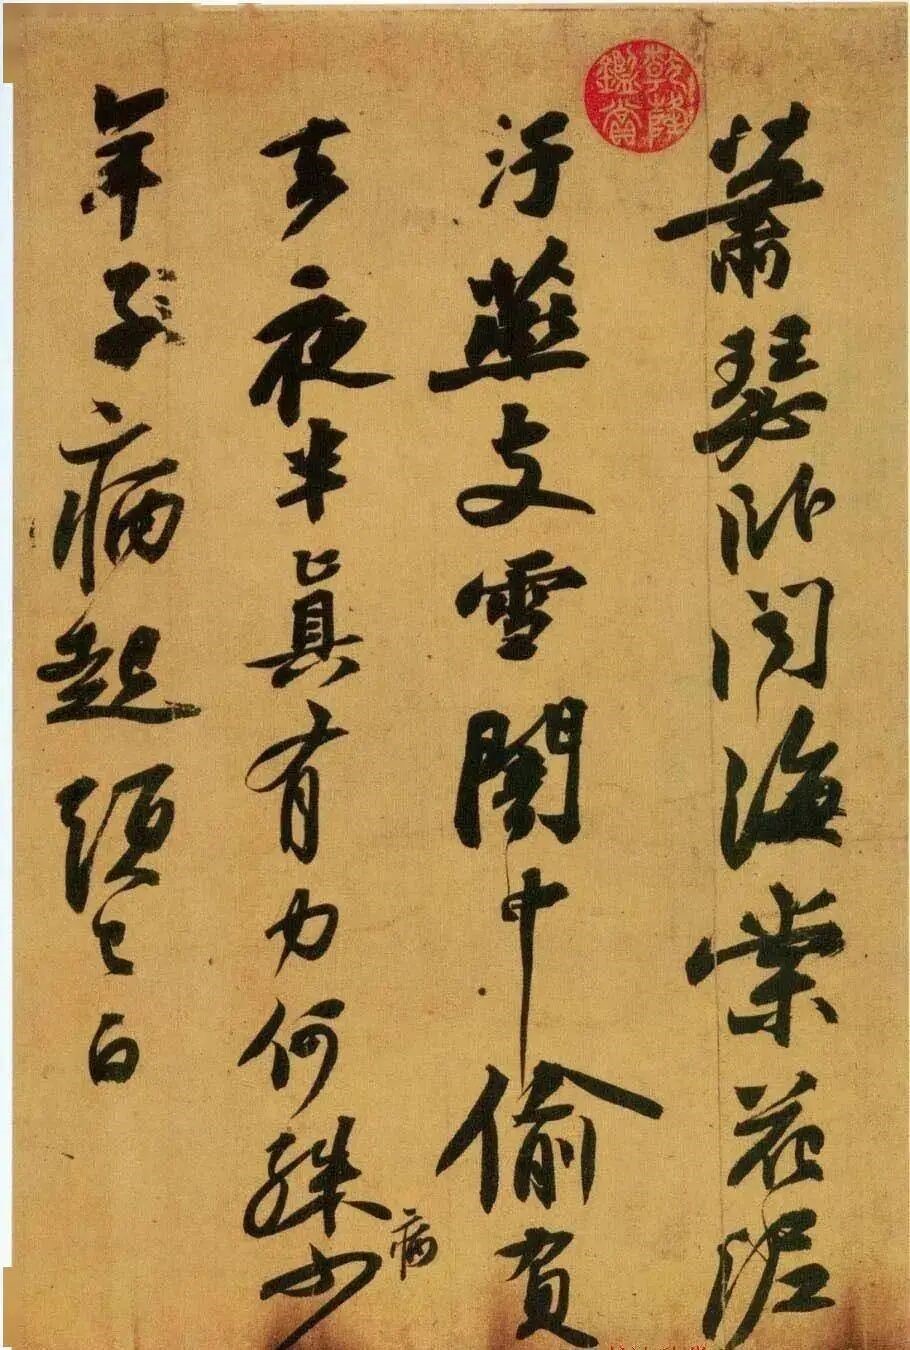 萧瑟卧闻海棠花泥
汙燕支雪闇中偷負
去夜半真有力何殊少
病
年子病起須已白
乾隆鑑賞